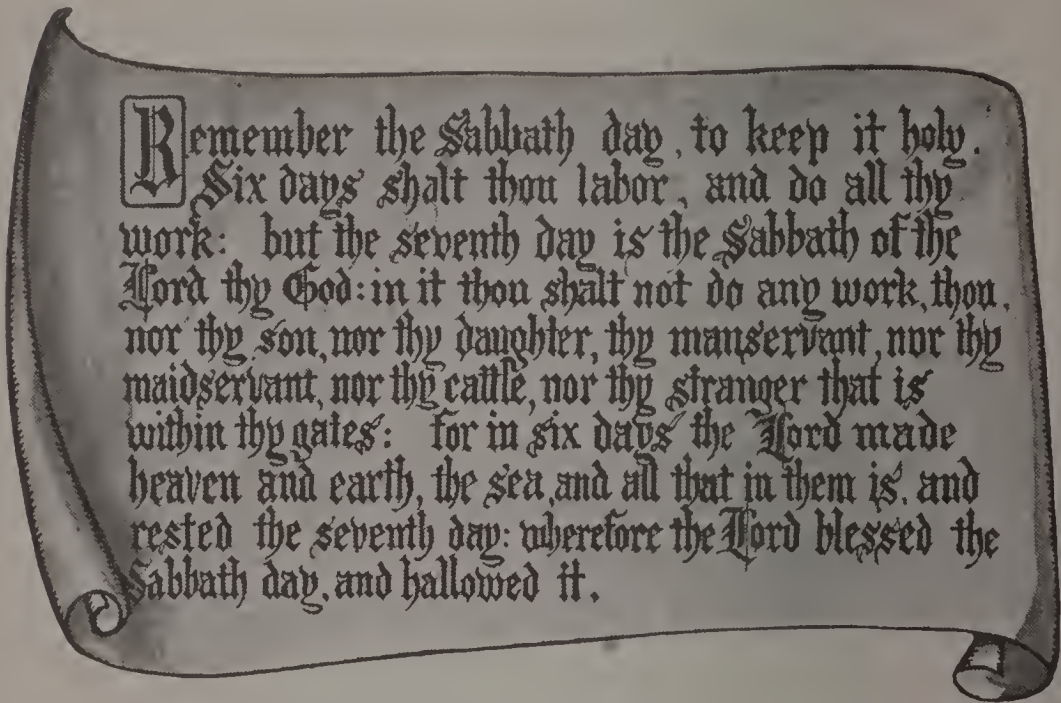 Remember the Sabbath day, to keep it holy.
Six days shalt thou labor, and do all thy
work: but the seventh day is the Sabbath of the
Lord thy God: in it thou shalt not do any work, thou,
nor thy son, nor thy daughter, thy manservant, nor thy
maidservant, nor thy cattle, nor thy stranger that is
within thy gates: for in six days the Lord made
heaven and earth, the sea, and all that in them is, and
rested the seventh day: wherefore the Lord blessed the
Sabbath day, and hallowed it.